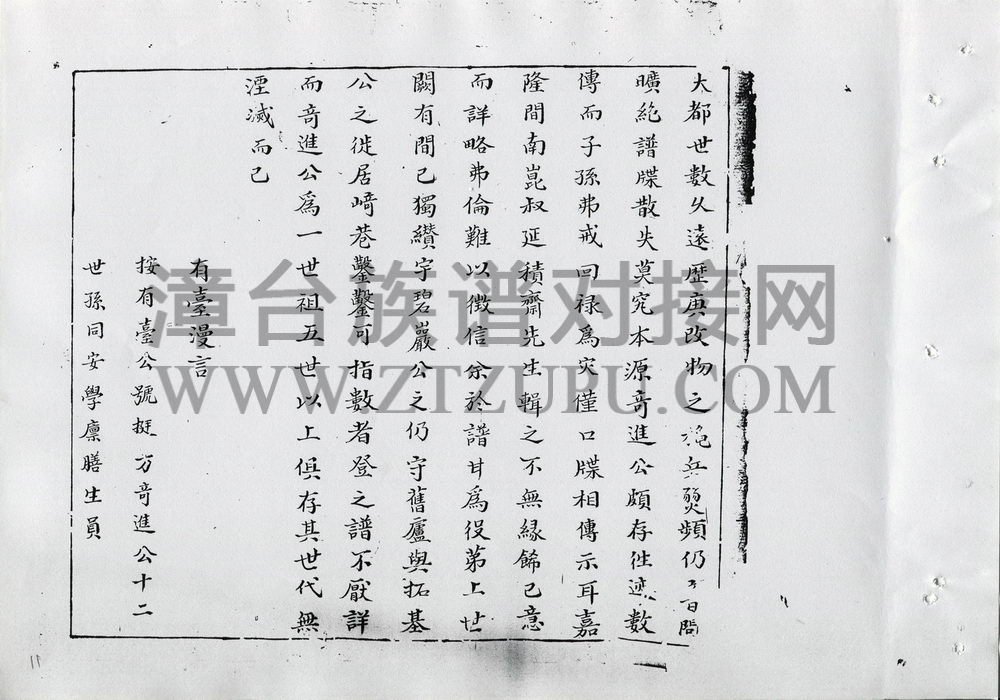 大都世數久遠歷庚改物之兵燹頻仍百間
曠絶譜牒散失莫究本源奇進公頗存往迹數
傳而子孫弗戒回禄為灾僅口牒相傳示耳嘉
隆間南崑叔延積齋先生輯之不無緣飾己意
而詳略弗倫難以徴信余於譜甘為役第上世
闕有間已獨纘宇碧巖公之仍守舊廬與拓基
公之徙居﨑巷鑿鑿可指數者登之譜不厭詳
而竒進公為一世祖五世以上俱存其世代無
湮滅而已
有臺漫言
按有臺公號挺方竒進公十二
世孫同安學廪膳生員
漳台族谱对接网
WWW.ZTZUPU.COM
11